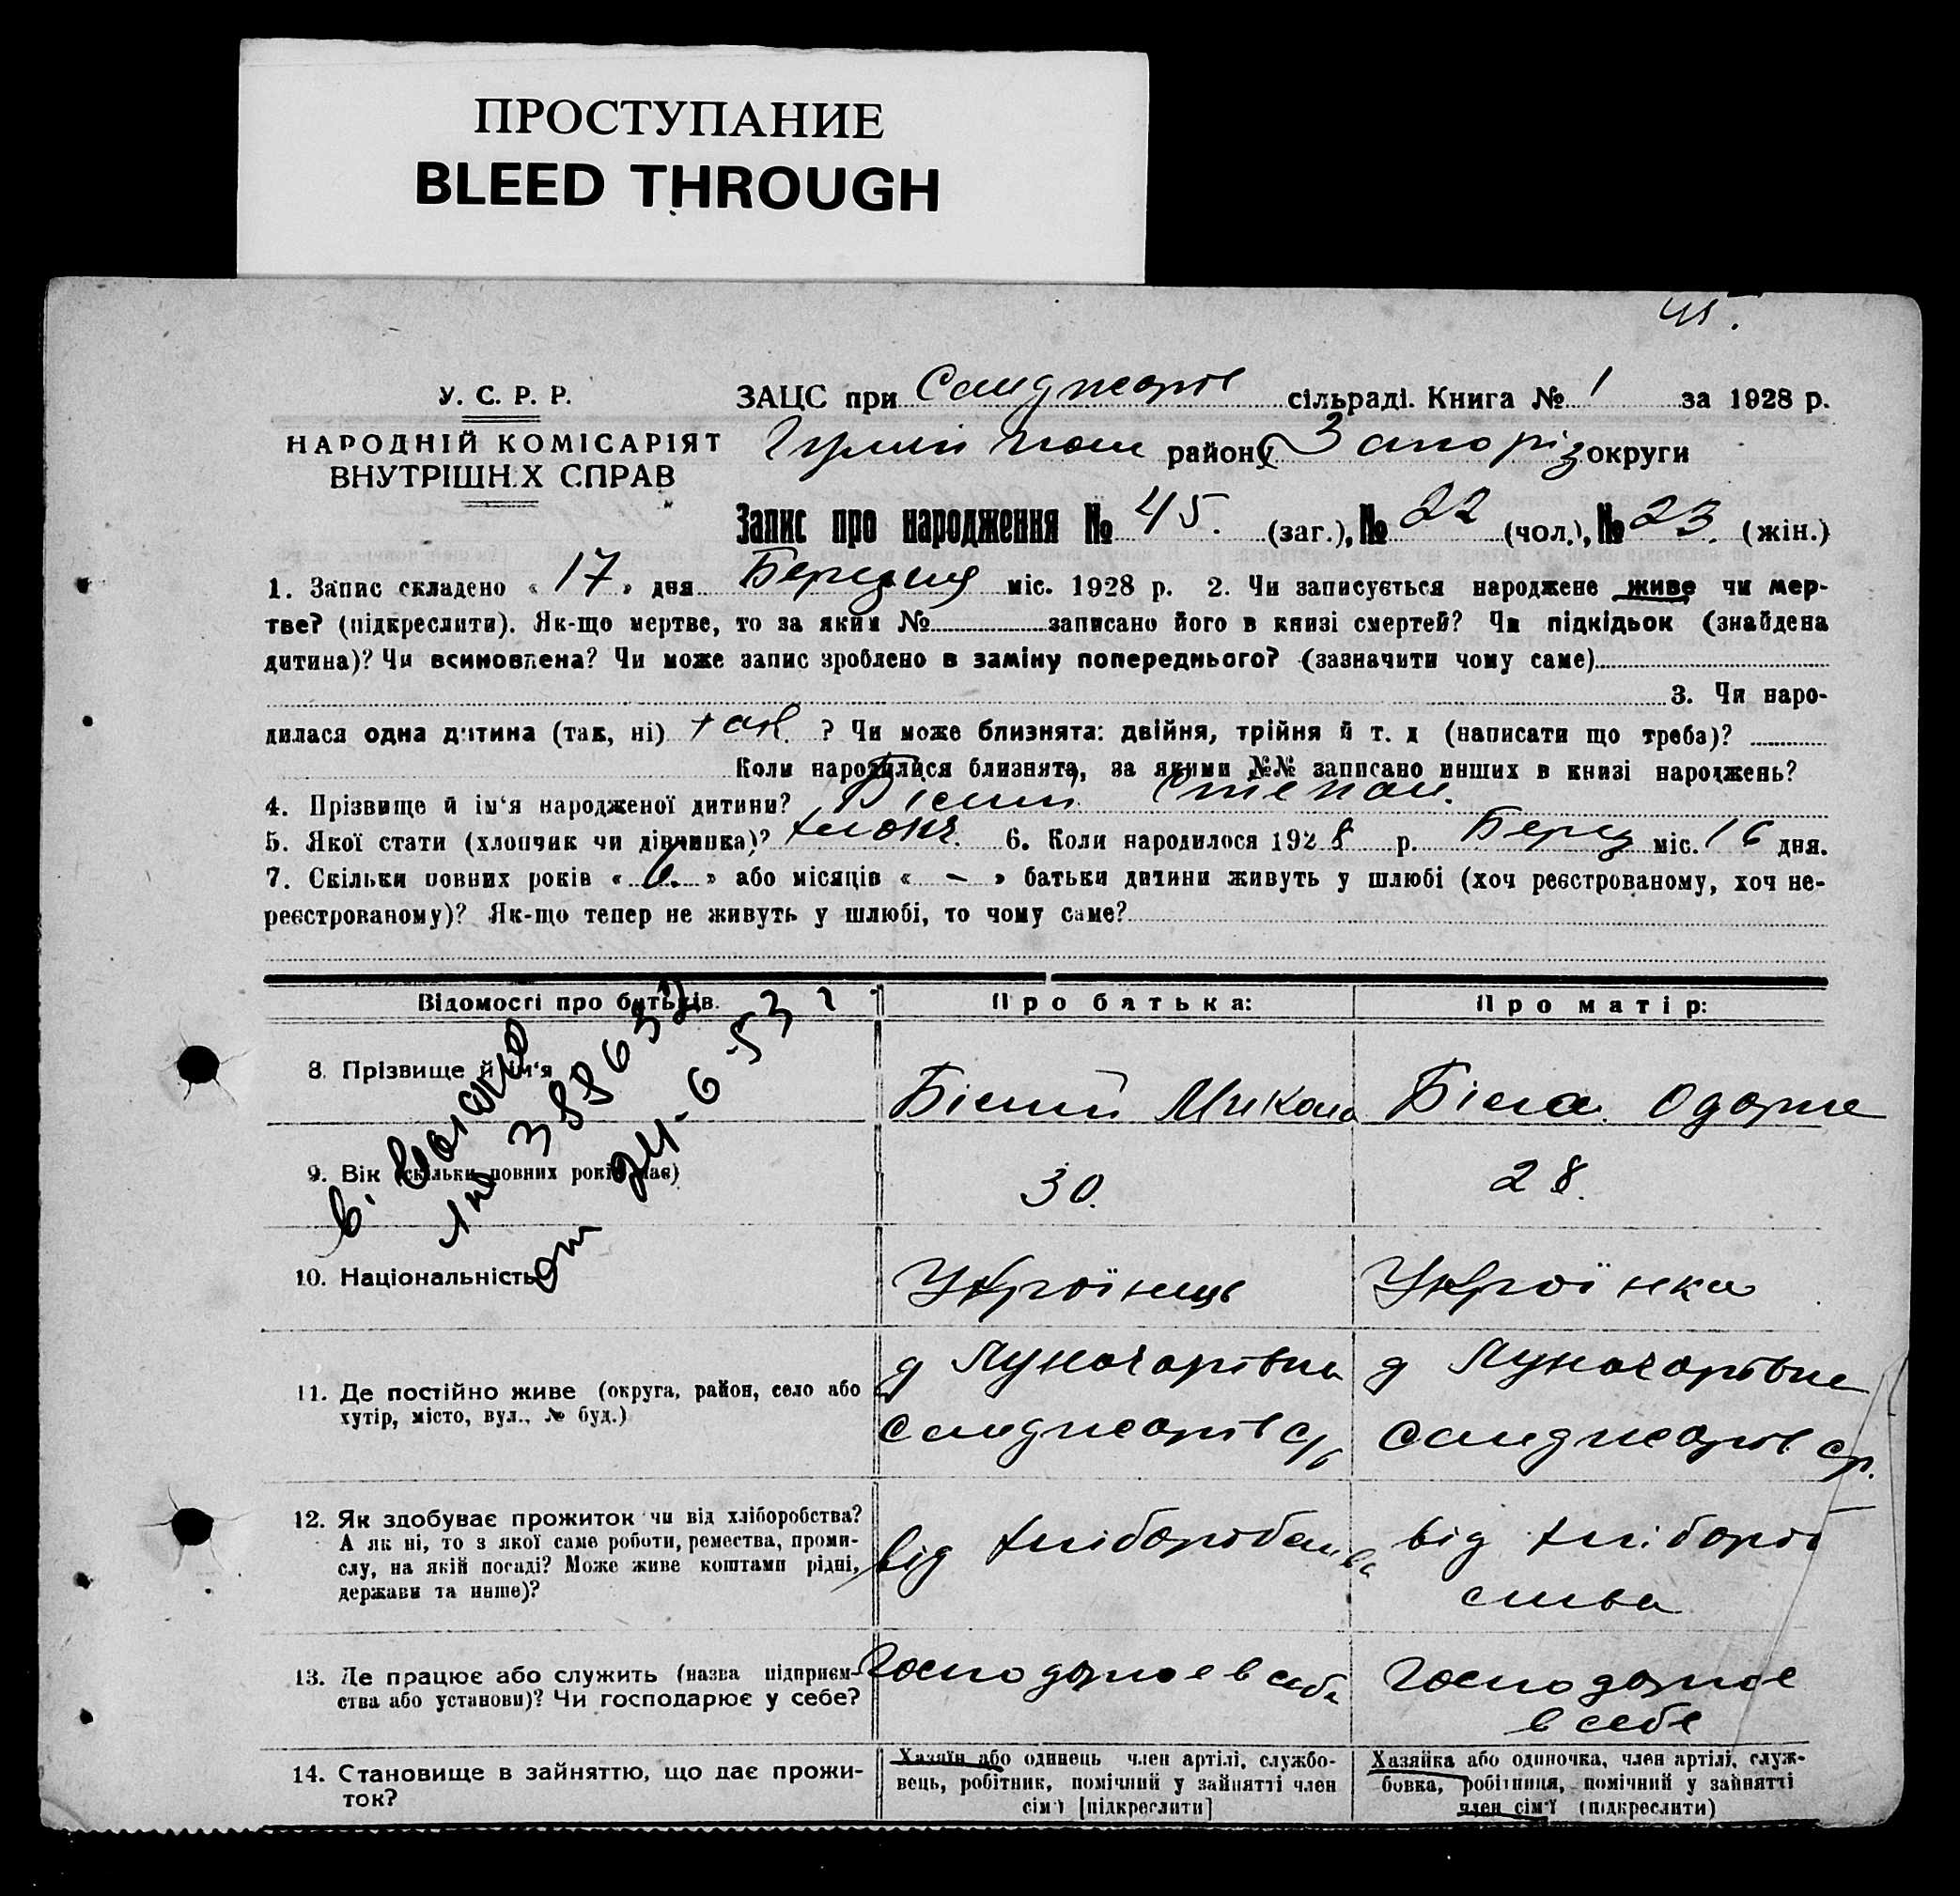 ПРОСТУПАНИЕ
BLEED THROUGH
45.
У. С. Р. Р.
НАРОДНІЙ КОМІСАРІЯТ
ВНУТРІШН.Х СПРАВ
ЗАЦС при Санджарів сільраді. Книга № 1 за 1928 р.
Гуляй Поль району Запоріз округи
Запис про народження № 45. (заг.), № 22 (чол.), № 23. (жін.)
1. Запис складено « 17 » дня Березня міс. 1928 р. 2. Чи записується народжене живе чи мер-
тве? (підкреслити). Як-що мертве, то за яким № записано його в книзі смертей? Чи підкідьок (знайдена
дитина)? Чи всиновлена? Чи може запис зроблено в заміну попереднього? (зазначити чому саме)
3. Чи наро-
дилася одна дитина (так, ні) так. ? Чи може близнята: двійня, трійня й т. д (написати що треба)?
Коли народилися близнята, за якими №№ записано инших в книзі народжень?
4. Прізвище й ім'я народженої дитини? Білий Степан.
5. Якої стати (хлопчик чи дівчинка)? хлопч. 6. Коли народилося 1928 р. Берез міс. 16 дня.
7. Скільки повних років « 6. » або місяців « – » батьки дитини живуть у шлюбі (хоч реєстрованому, хоч не-
реєстрованому)? Як-що тепер не живуть у шлюбі, то чому саме?
Відомості про батьків. Про батька: Про матір:
8. Прізвище й ім'я Білий Микола Біла Одарка
9. Вік (скільки повних років має) 30. 28.
10. Національність Українець Українка
11. Де постійно живе (округа, район, село або
хутір, місто, вул., № буд.)
д Луначарівка д Луначарівка
Санджарів с/р Санджарів ср.
12. Як здобуває прожиток чи від хліборобства?
А як ні, то з якої саме роботи, ремества, проми-
слу, на якій посаді? Може живе коштами рідні,
держави та инше)?
від хліборобства від хлібороб
ства
13. Де працює або служить (назва підприєм-
ства або установи)? Чи господарює у себе?
Господарює в себе Господарює
в себе
14. Становище в зайняттю, що дає прожи-
ток?
Хазяїн або одинець член артілі, службо-
вець, робітник, помічний у зайнятті член
сім'ї [підкреслити]
Хазяйка або одиночка, член артілі, служ-
бовка, робітниця, помічний у зайнятті
член сім'ї (підкреслити)
от 24-6-53 г